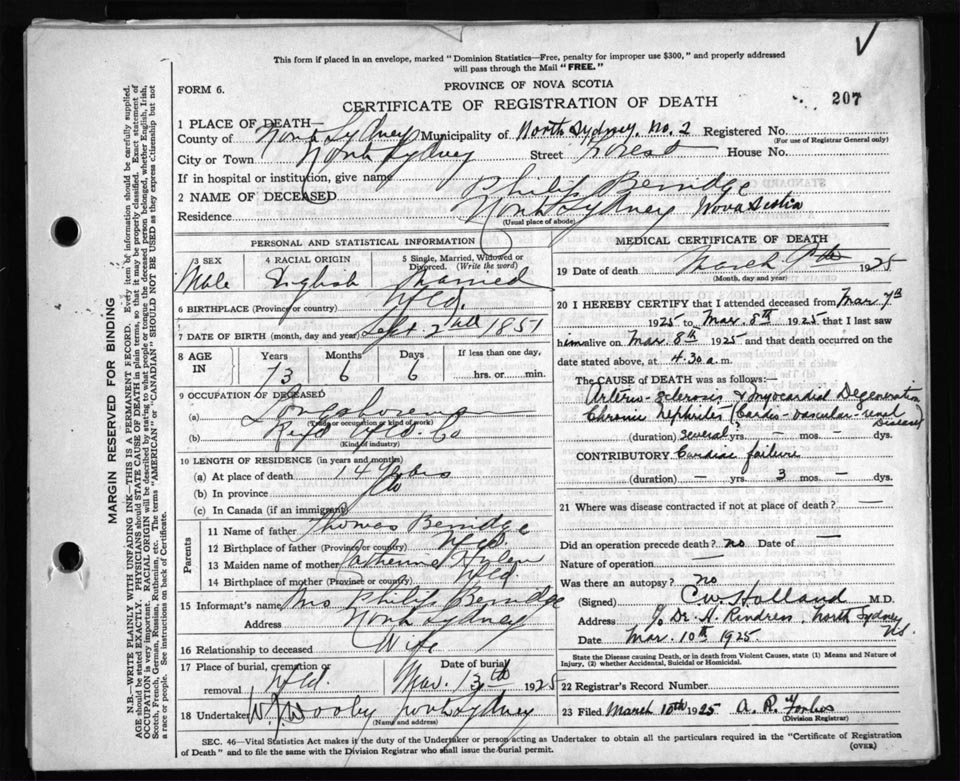 This form if placed in an envelope, marked "Dominion Statistics—Free, penalty for improper use $300," and properly addressed
will pass through the Mail "FREE."
FORM 6.
PROVINCE OF NOVA SCOTIA
CERTIFICATE OF REGISTRATION OF DEATH
207
1 PLACE OF DEATH—
County of North Sydney Municipality of North Sydney. No. 2 Registered No.
(For use of Registrar General Only)
City or Town North Sydney Street Forest House No.
If in hospital or institution, give name
2 NAME OF DECEASED Philip Berridge
Residence North Sydney Nova Scotia
(Usual place of abode)
PERSONAL AND STATISTICAL INFORMATION
3 SEX
Male
4 RACIAL ORIGIN
English
5 Single, Married, Widowed or
Divorced. (Write the word)
Married
6 BIRTHPLACE (Province or country) Nfld.
7 DATE OF BIRTH (month, day and year) Sept. 2 1851
8 AGE
IN
Years
73
Months
6
Days
6
If less than one day,
hrs. or min.
9 OCCUPATION OF DECEASED
(a) Longshoreman
(Trade or occupation or kind of work)
(b) Reid Nfld. Co
(Kind of industry)
10 LENGTH OF RESIDENCE (in years and months)
(a) At place of death 14 Years
(b) In province
(c) In Canada (if an immigrant)
Parents
11 Name of father Thomas Berridge
12 Birthplace of father (Province or country) Nfld
13 Maiden name of mother Catherine
14 Birthplace of mother (Province or country) Nfld.
15 Informant's name Mrs Philip Berridge
Address North Sydney
16 Relationship to deceased Wife
17 Place of burial, cremation or
removal Nfld.
Date of burial
Mar. 13th 1925
18 Undertaker W. J. Wooby North Sydney
(Name and address)
MEDICAL CERTIFICATE OF DEATH
19 Date of death March 1925
(Month, day and year)
20 I HEREBY CERTIFY that I attended deceased from Mar 7th
1925 to Mar 8th 1925 that I last saw
him alive on Mar. 8th 1925 and that death occurred on the
date stated above, at 4.30 a.m.
The CAUSE of DEATH was as follows:—
Arterio-sclerosis & Myocardial Degeneration
Chronic nephritis (Cardio-vascular-renal
Disease)
(duration) several yrs. — mos. — dys.
CONTRIBUTORY Cardiac failure
(duration) — yrs. 3 mos. — dys.
21 Where was disease contracted if not at place of death? —
Did an operation precede death? no Date of —
Nature of operation —
Was there an autopsy? no
(Signed) C.W. Holland M.D.
Address c/o Dr. A. Rindress, North Sydney
N.S.
Date Mar. 10th 1925.
State the Disease causing Death, or in death from Violent Causes, state (1) Means and Nature of
Injury, (2) whether Accidental, Suicidal or Homicidal.
22 Registrar's Record Number
23 Filed March 10th 1925 A. R. Forbes
(Division Registrar)
SEC. 46—Vital Statistics Act makes it the duty of the Undertaker or person acting as Undertaker to obtain all the particulars required in the "Certificate of Registration
of Death" and to file the same with the Division Registrar who shall issue the burial permit.
(OVER)
MARGIN RESERVED FOR BINDING
N.B.—WRITE PLAINLY WITH UNFADING INK—THIS IS A PERMANENT RECORD. Every item of information should be carefully supplied.
AGE should be stated EXACTLY. PHYSICIANS should STATE CAUSE OF DEATH in plain terms, so that it may be properly classified. Exact statement of
OCCUPATION is very important. RACIAL ORIGIN will be described by stating to what people or tongue the deceased person belonged, whether English, Irish,
Scotch, French, German, Russian, Ruthenian, etc. The terms "AMERICAN" or "CANADIAN" SHOULD NOT BE USED as they express citizenship but not
a race or people. See instructions on back of Certificate.